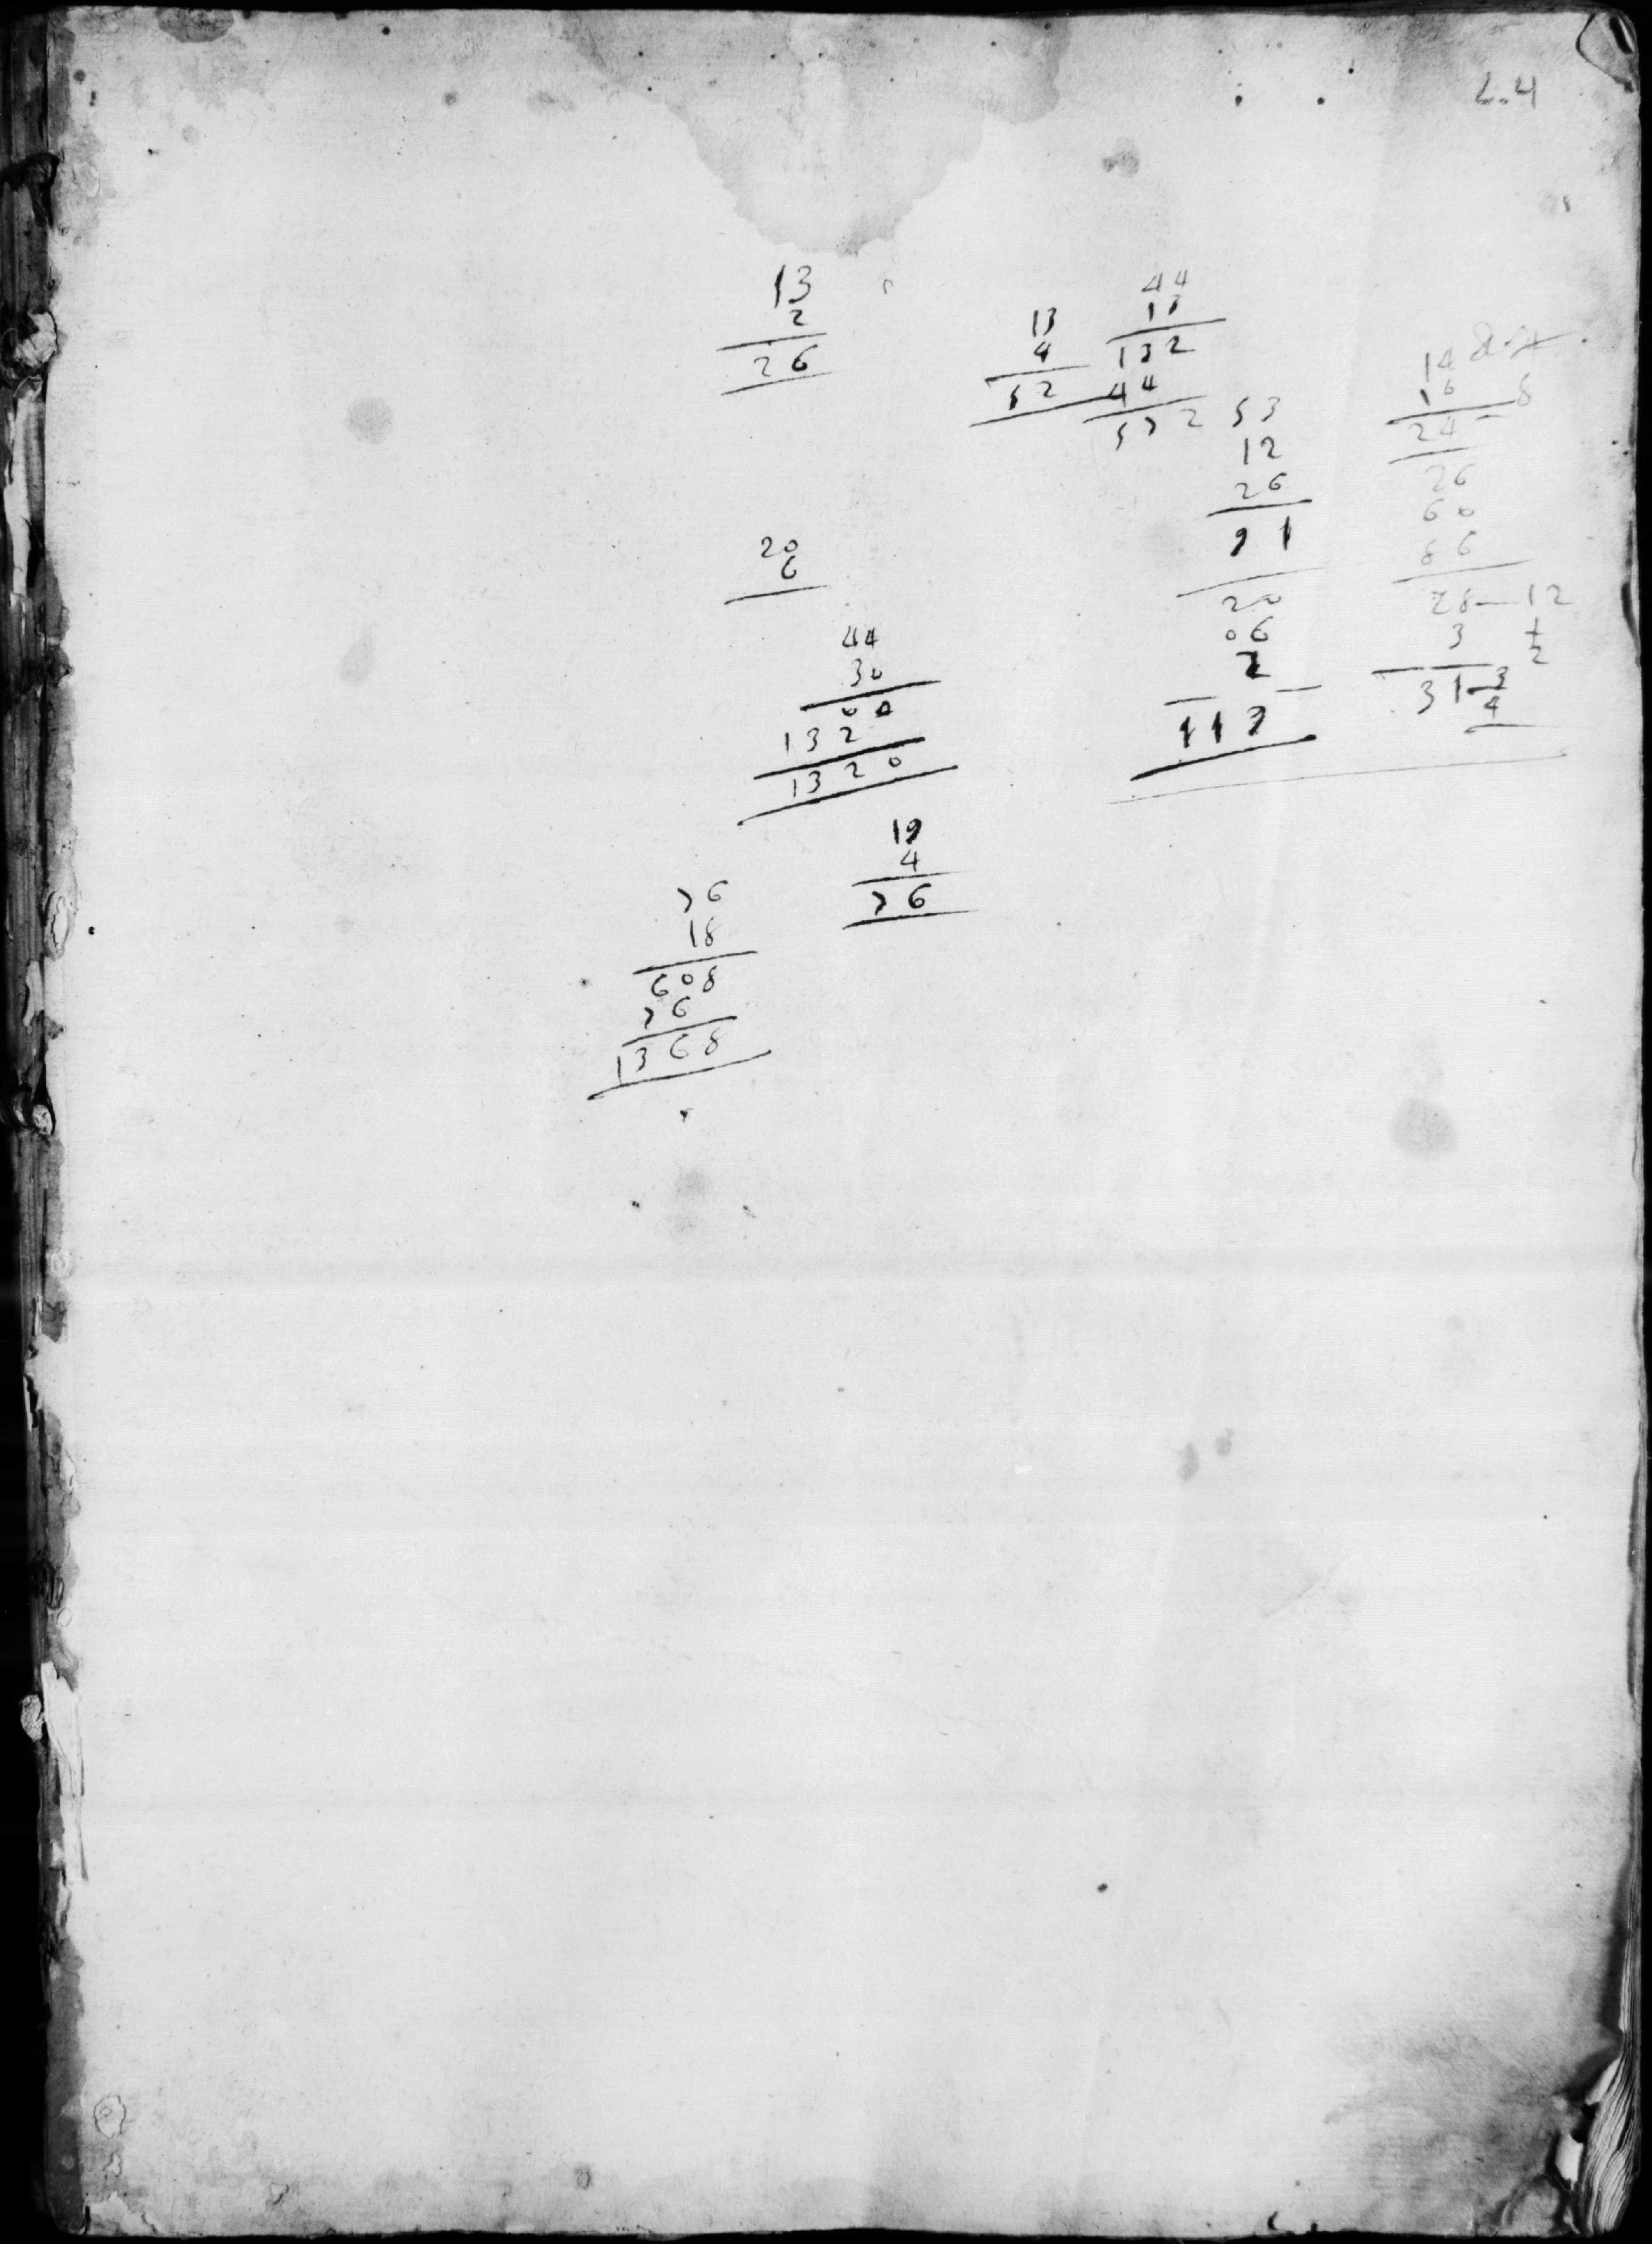 L.4
13
2
26
13
4
52
44
13
132
44
572
53
12
26
91
20
06
2
117
14
10
24
8
26
60
86
28—12
3 1/2
31 3/4
20
6
44
30
00
132
1320
19
4
76
76
18
608
76
1368